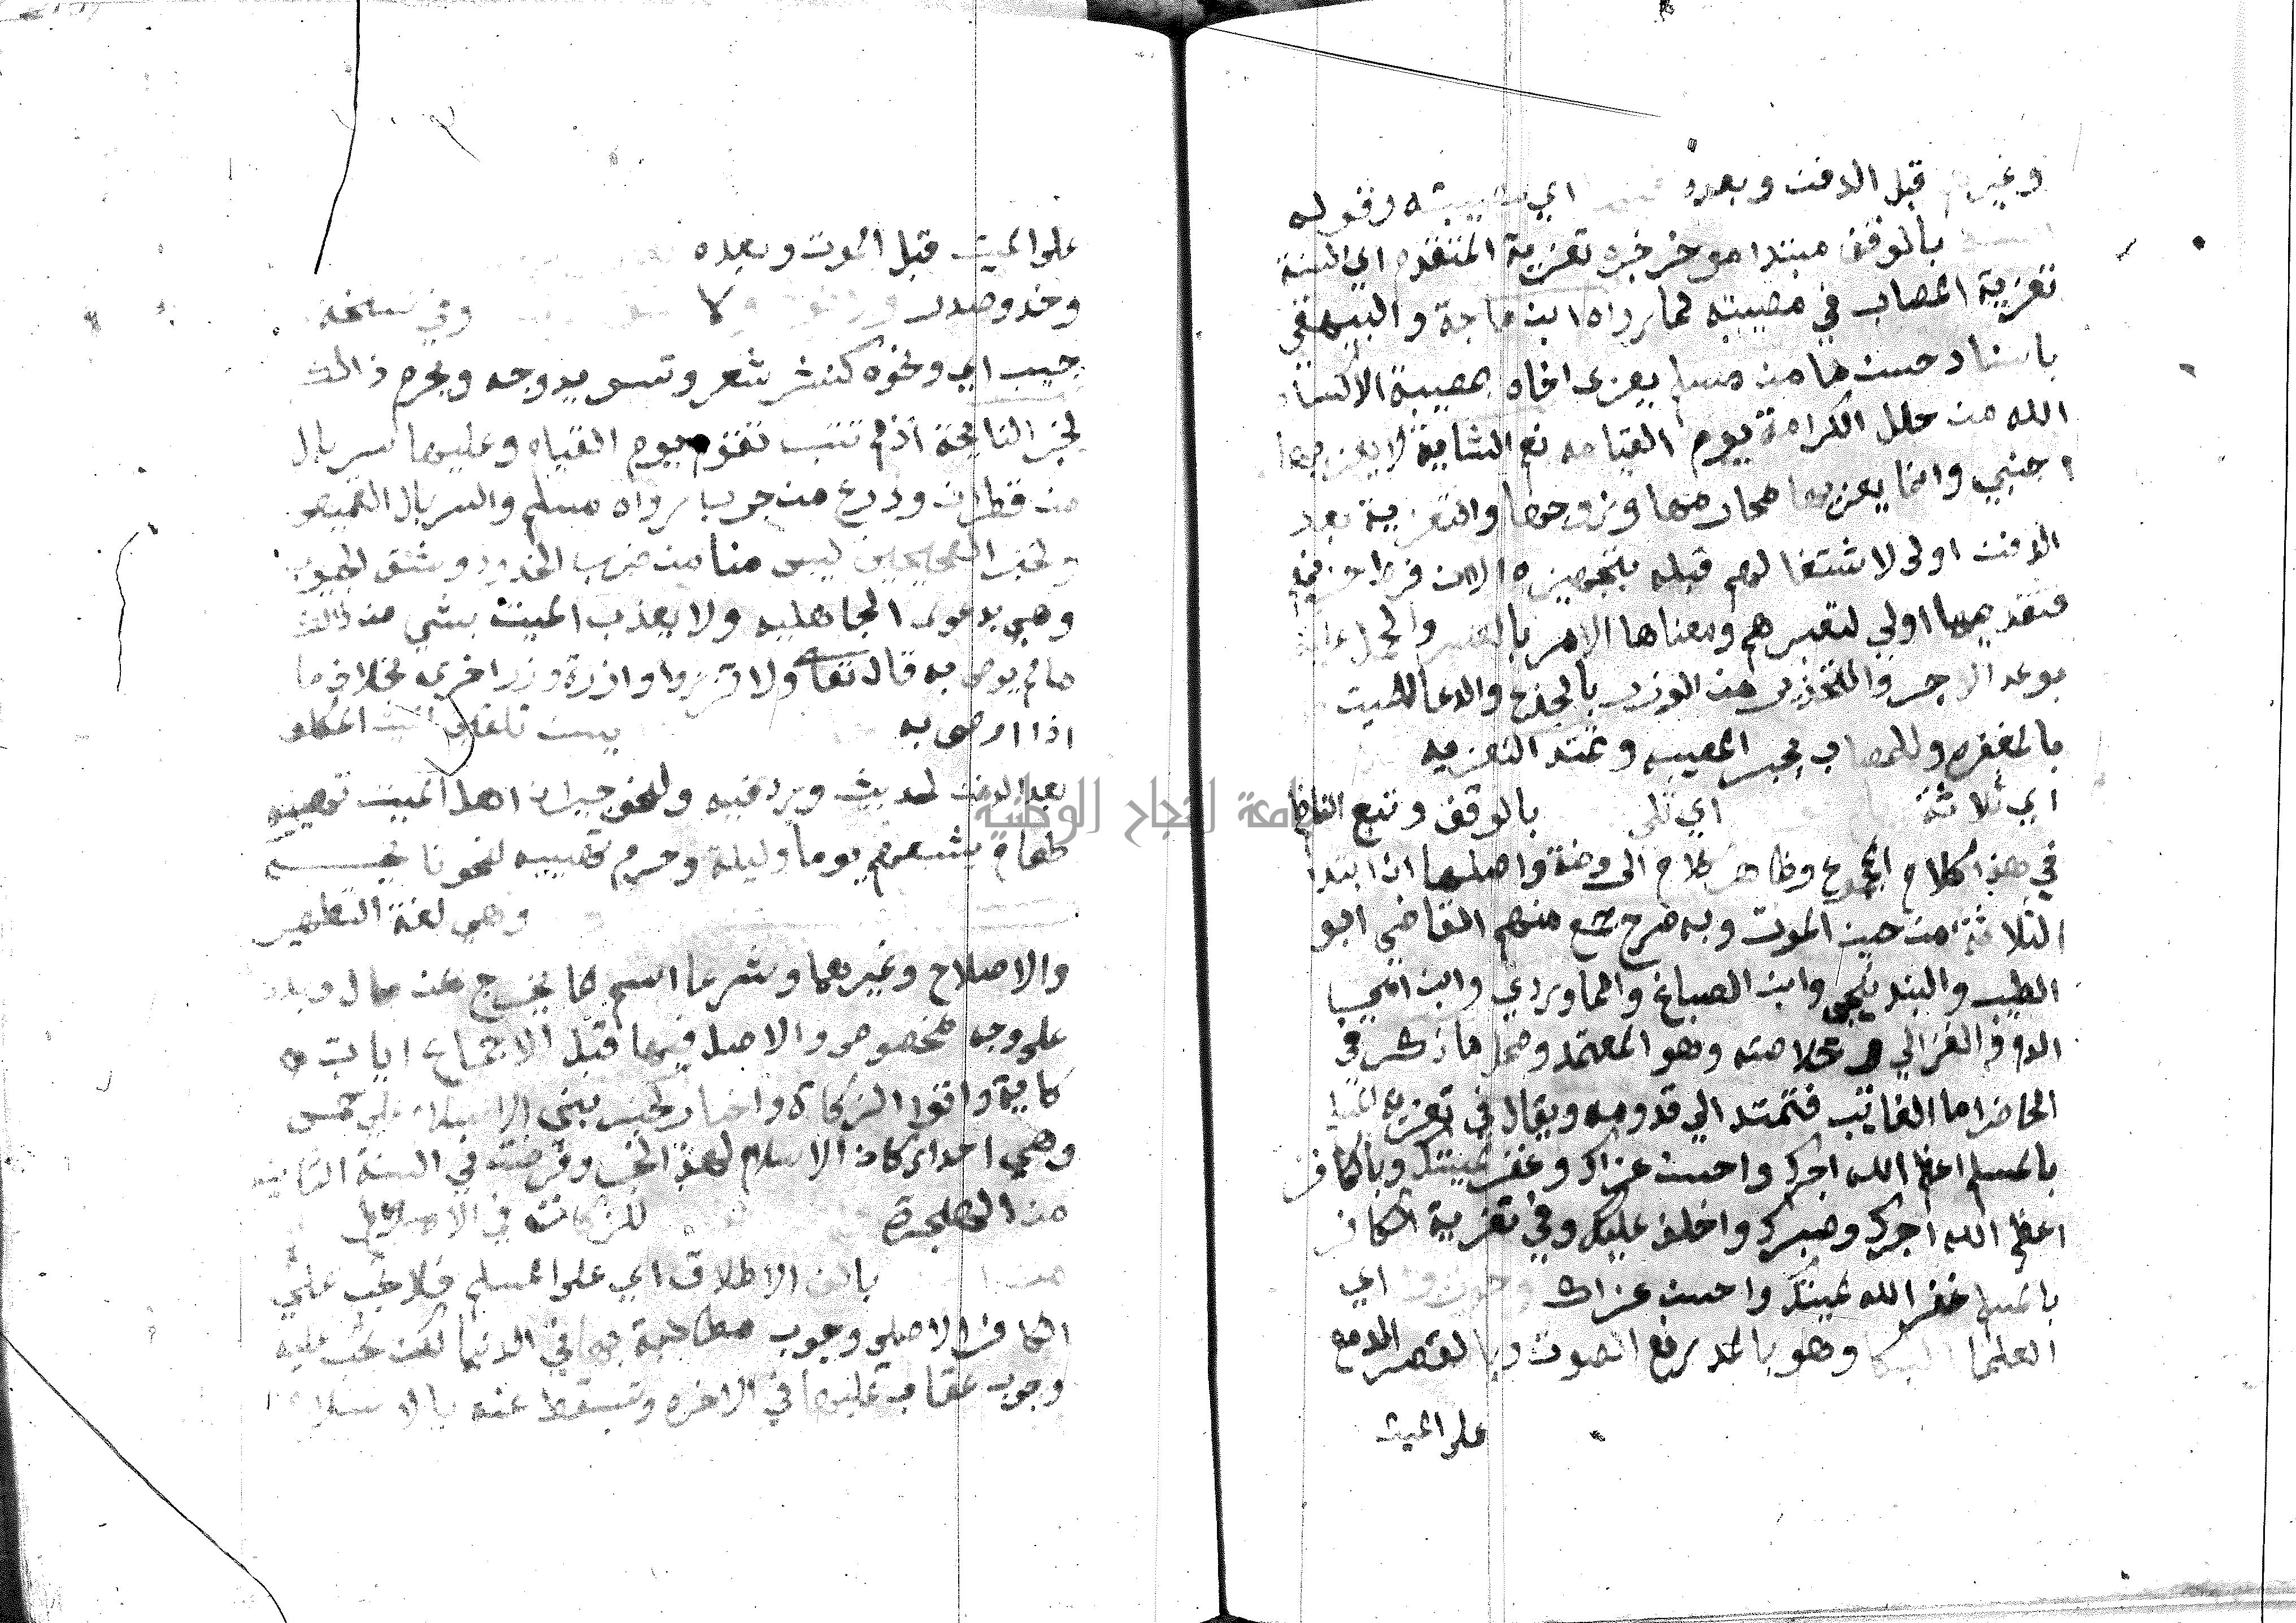 وغيرهم قبل الدفن وبعده اي مصيبته وقوله
بالوقف مبتدا موخر خبره تعزية المتقدم اي السنة
تعزية المصاب في مصيبته لما رواه ابن ماجة والبيهقي
باسناد حسن ما من مسلم يعزى اخاه بمصيبة الا كساه
الله من حلل الكرامة يوم القيامه نع الشابة لا يعزيها
اجنبي وانما يعزيها محارمها وزوجها والتعزية بعد
الدفن اولى لاشتغالهم قبله بتجهيزه الا ان فرط حزنهم
فتقديمها اولي لتصبرهم ومعناها الامر بالصبر والحمل عليه
بوعد الاجر والتحذير من الوزر بالجزع والدعا للميت
بالمغفره وللمصاب بجبر المصيبه وتمتد التعزيه
اي ثلاثة اي تلي بالوقف وتبع الناظم
في هذا كلام المجموع وظاهر كلام الروضة واصلها ان ابتدا
الثلاثة من حين الموت وبه صرح جمع منهم القاضي ابو
الطيب والبندنيجي وابن الصباغ والماوردي وابن ابي
الدم والغزالي في خلاصته وهو المعتمد ومحل ما ذكر في
الحاضر اما الغائب فتمتد الي قدومه ويقال في تعزية المسلم
بالمسلم اعظم الله اجرك واحسن عزاك وغفر لميتك وبالكافر
اعظم الله اجرك وصبرك واخلف عليك وفي تعزية الكافر
بالمسلم غفر الله لميتك واحسن عزاك وجوزوا اي
العلما البكا وهو بالمد رفع الصوت وبالقصر الدمع
على الميت
على الميت قبل الموت وبعده
وخد وصدر لا وفي نسخة
جيب اي ونحوه كنشر شعر وتسويد وجه ويحرم ذالك
لخبر النايحة اذ لم تتب تقوم يوم القياه وعليها سربال
من قطران ودرع من جرب رواه مسلم والسربال القميص
ولخبر الصحيحين ليس منا من ضرب الخدود وشق الجيوب
وهي بدعوى الجاهليه ولا يعذب الميت بشي من ذالك
ما لم يوص به قال تعا ولا تزروا وازرة وزر اخرى بخلاف ما
اذا اوصى به يسن تلقين الميت المكلف
بعد الدفن لحديث ورد فيه ولنحو جيران اهل الميت تهيئه
طعام يشبعهم يوما وليلة وحرم تهييه لنحو نايحـــة
وهي لغة التطهير
والاصلاح وغيرهما وشرعا اسم لما يخرج عن مال وبدن
على وجه مخصوص والاصل فيها قبل الاجماع ايات
كاية واتوا الزكاة واخبار كخبر بني الاسلام على خمس
وهي احد اركان الاسلام لهذا الخبر وفرضت في السنة الثانيه
من الهجرة للزكاة في الاسلام
بالف الاطلاق اي على المسلم فلا تجب على
الكافر الاصلي وجوب مطالبة بها في الدنيا لكن تجب عليه
وجوب عقاب عليها في الاخره وتسقط عنه بالاسلام
جامعة النجاح الوطنية